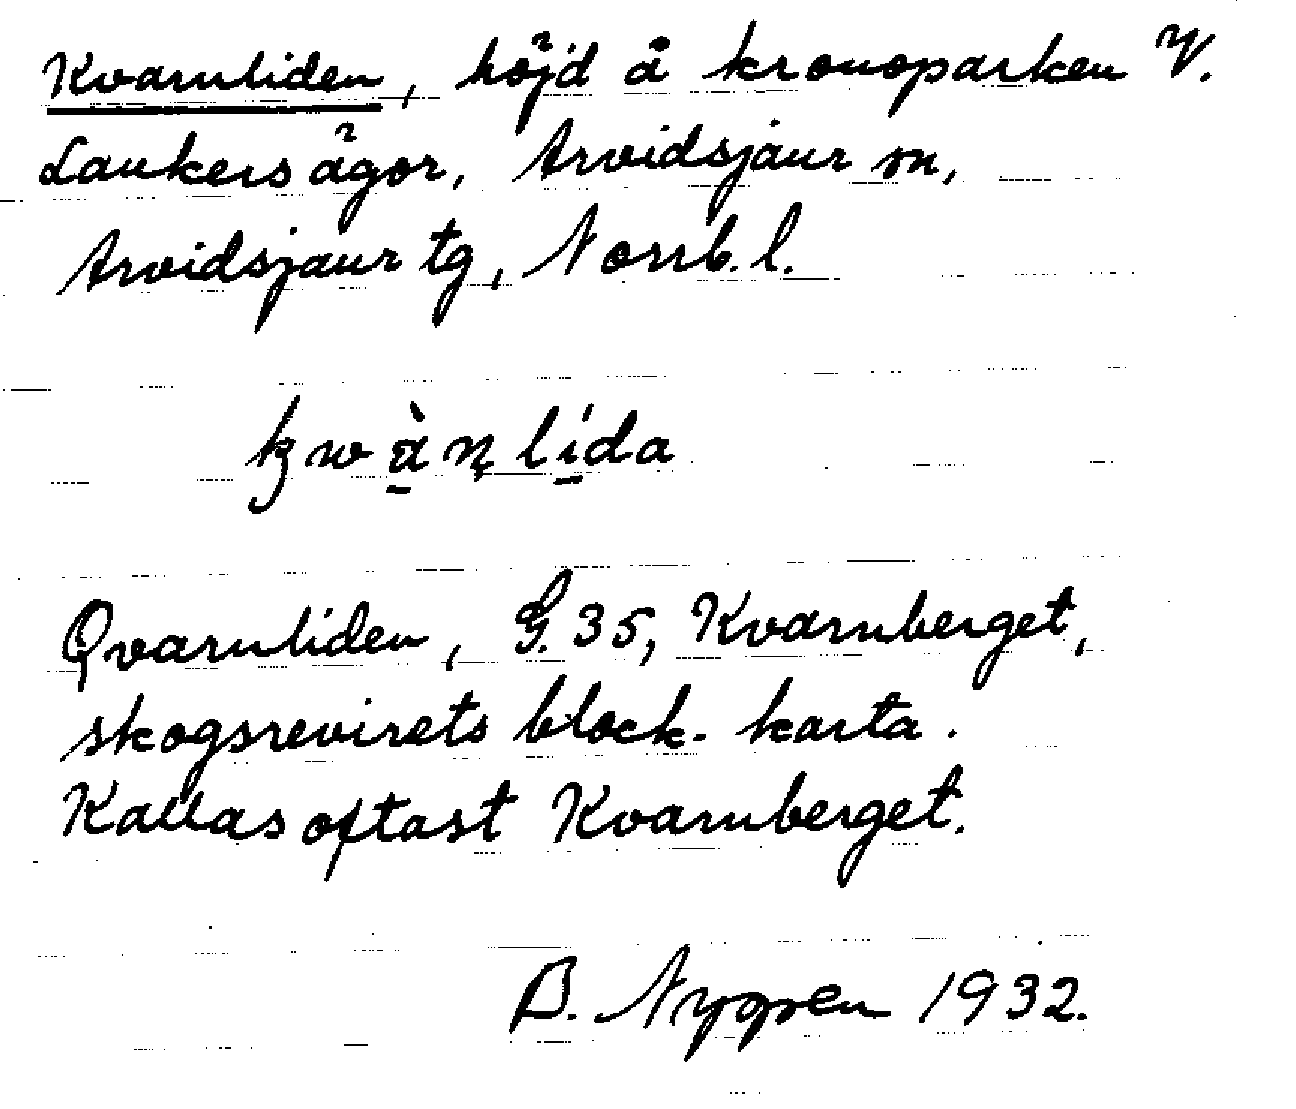 Kvarnliden, höjd å kronoparken V.
Laukers ägor, Arvidsjaur sn,
Arvidsjaur tg, Norrb. l.
kwàṇlída
Qvarnliden, G. 35, Kvarnberget,
skogsrevirets block. karta.
Kallas oftast Kvarnberget.
B. Nygren 1932.